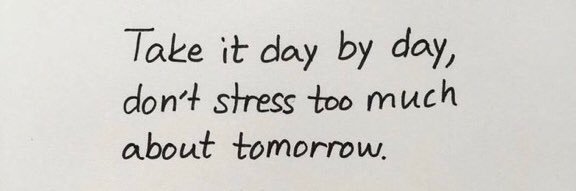 Take it day by day,
don't stress too much
about tomorrow.